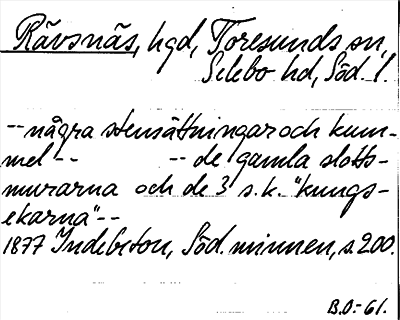 Rävsnäs, hgd, Toresunds sn,
Selebo hd, Söd. l.
-- några stensättningar och kum-
mel -- -- de gamla slotts-
murarna och de 3 s.k. "kungs-
ekarna" --
1877 Indebetou, Söd. minnen, s. 200.
B.O. -61.